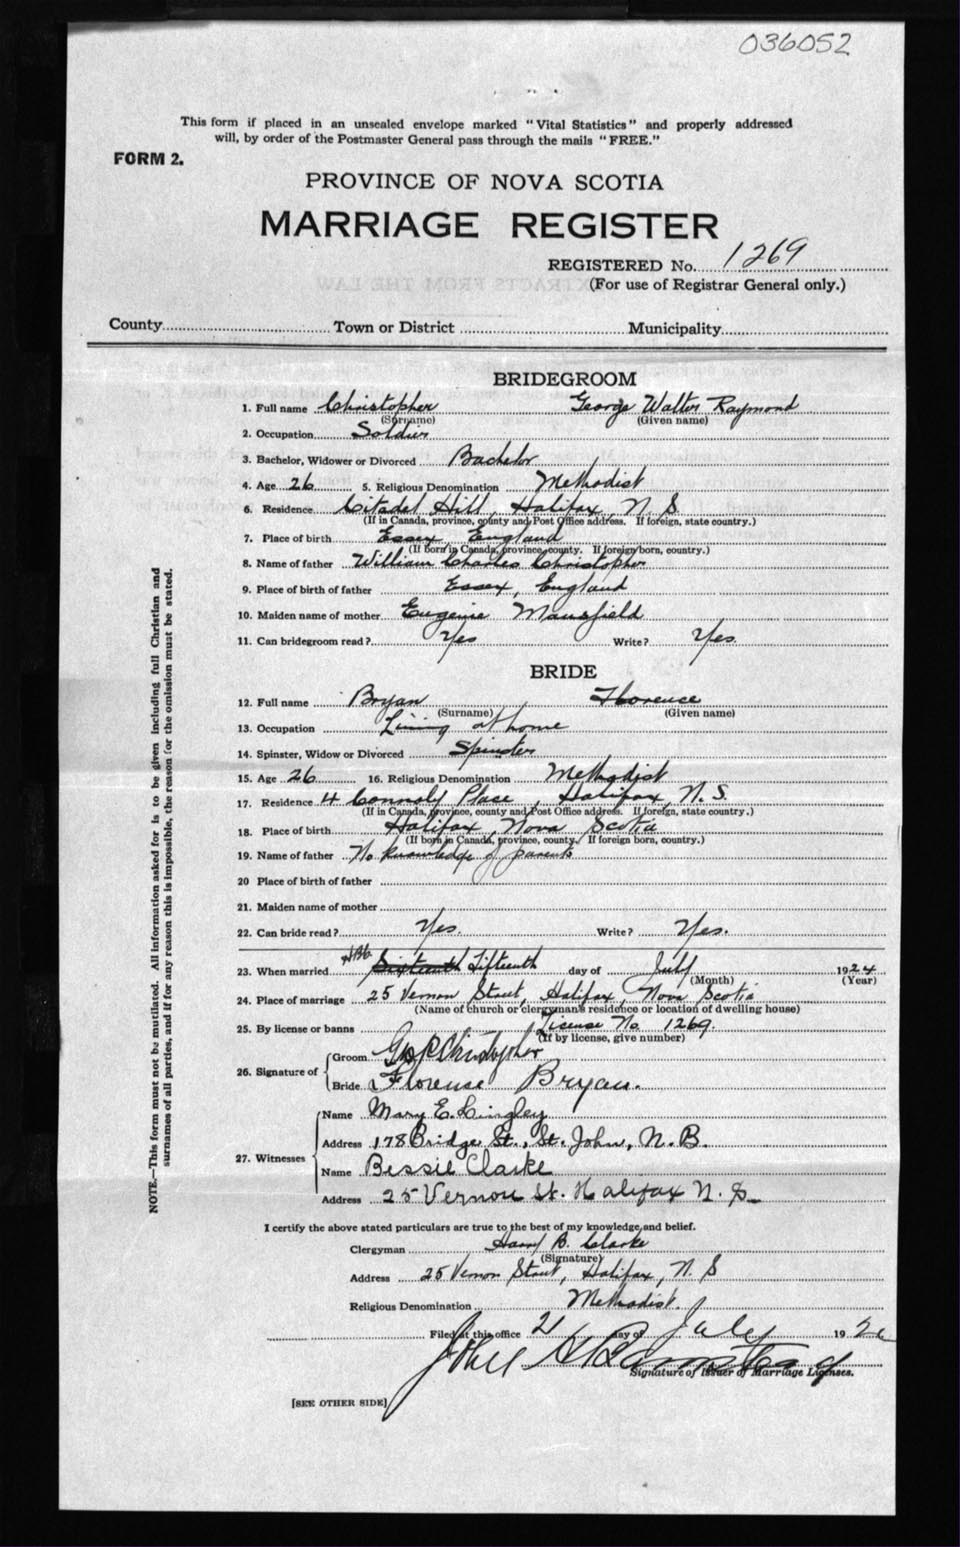 036052
This form if placed in an unsealed envelope marked "Vital Statistics" and properly addressed
will, by order of the Postmaster General pass through the mails "FREE."
FORM 2.
PROVINCE OF NOVA SCOTIA
MARRIAGE REGISTER
REGISTERED No. 1269
(For use of Registrar General only.)
County Town or District Municipality
BRIDEGROOM
1. Full name Christopher George Walter Raymond
(Surname) (Given name)
2. Occupation Soldier
3. Bachelor, Widower or Divorced Bachelor
4. Age 26 5. Religious Denomination Methodist
6. Residence Citadel Hill, Halifax, N. S.
(If in Canada, province, county and Post Office address. If foreign, state country.)
7. Place of birth Essex, England
(If born in Canada, province, county. If foreign born, country.)
8. Name of father William Charles Christopher
9. Place of birth of father Essex, England
10. Maiden name of mother Eugenie Mansfield
11. Can bridegroom read? Yes Write? Yes.
BRIDE
12. Full name Bryan Florence
(Surname) (Given name)
13. Occupation Living at home
14. Spinster, Widow or Divorced Spinster
15. Age 26 16. Religious Denomination Methodist
17. Residence 4 Connoly Place, Halifax, N. S.
(If in Canada, province, county and Post Office address. If foreign, state country.)
18. Place of birth Halifax, Nova Scotia
(If born in Canada, province, county. If foreign born, country.)
19. Name of father No knowledge of parents
20 Place of birth of father
21. Maiden name of mother
22. Can bride read? Yes. Write? Yes.
23. When married HBC Sixteenth Fifteenth day of July 1924
(Month) (Year)
24. Place of marriage 25 Vernon Street, Halifax, Nova Scotia
(Name of church or clergyman's residence or location of dwelling house)
25. By license or banns License No. 1269.
(If by license, give number)
26. Signature of
Groom Christopher
Bride Florense Bryan.
27. Witnesses
Name Mary E. Lingley
Address 178 Bridge St., St. John, N. B.
Name Bessie Clarke
Address 25 Vernon St. Halifax N. S.
I certify the above stated particulars are true to the best of my knowledge and belief.
Clergyman Harry B. Clarke
(Signature)
Address 25 Vernon Street, Halifax, N. S
Religious Denomination Methodist.
Filed at this office 21 day of July 192
John
Signature of Issuer of Marriage Licenses.
[SEE OTHER SIDE]
NOTE.—This form must not be mutilated. All information asked for is to be given including full Christian and
surnames of all parties, and if for any reason this is impossible, the reason for the omission must be stated.